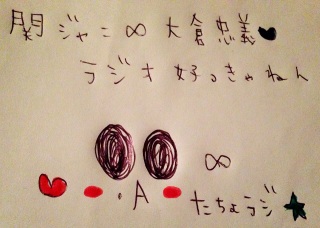 関ジャニ∞大倉忠義♥
ラジオ好っきゃねん
∞
・A たちょラジ★